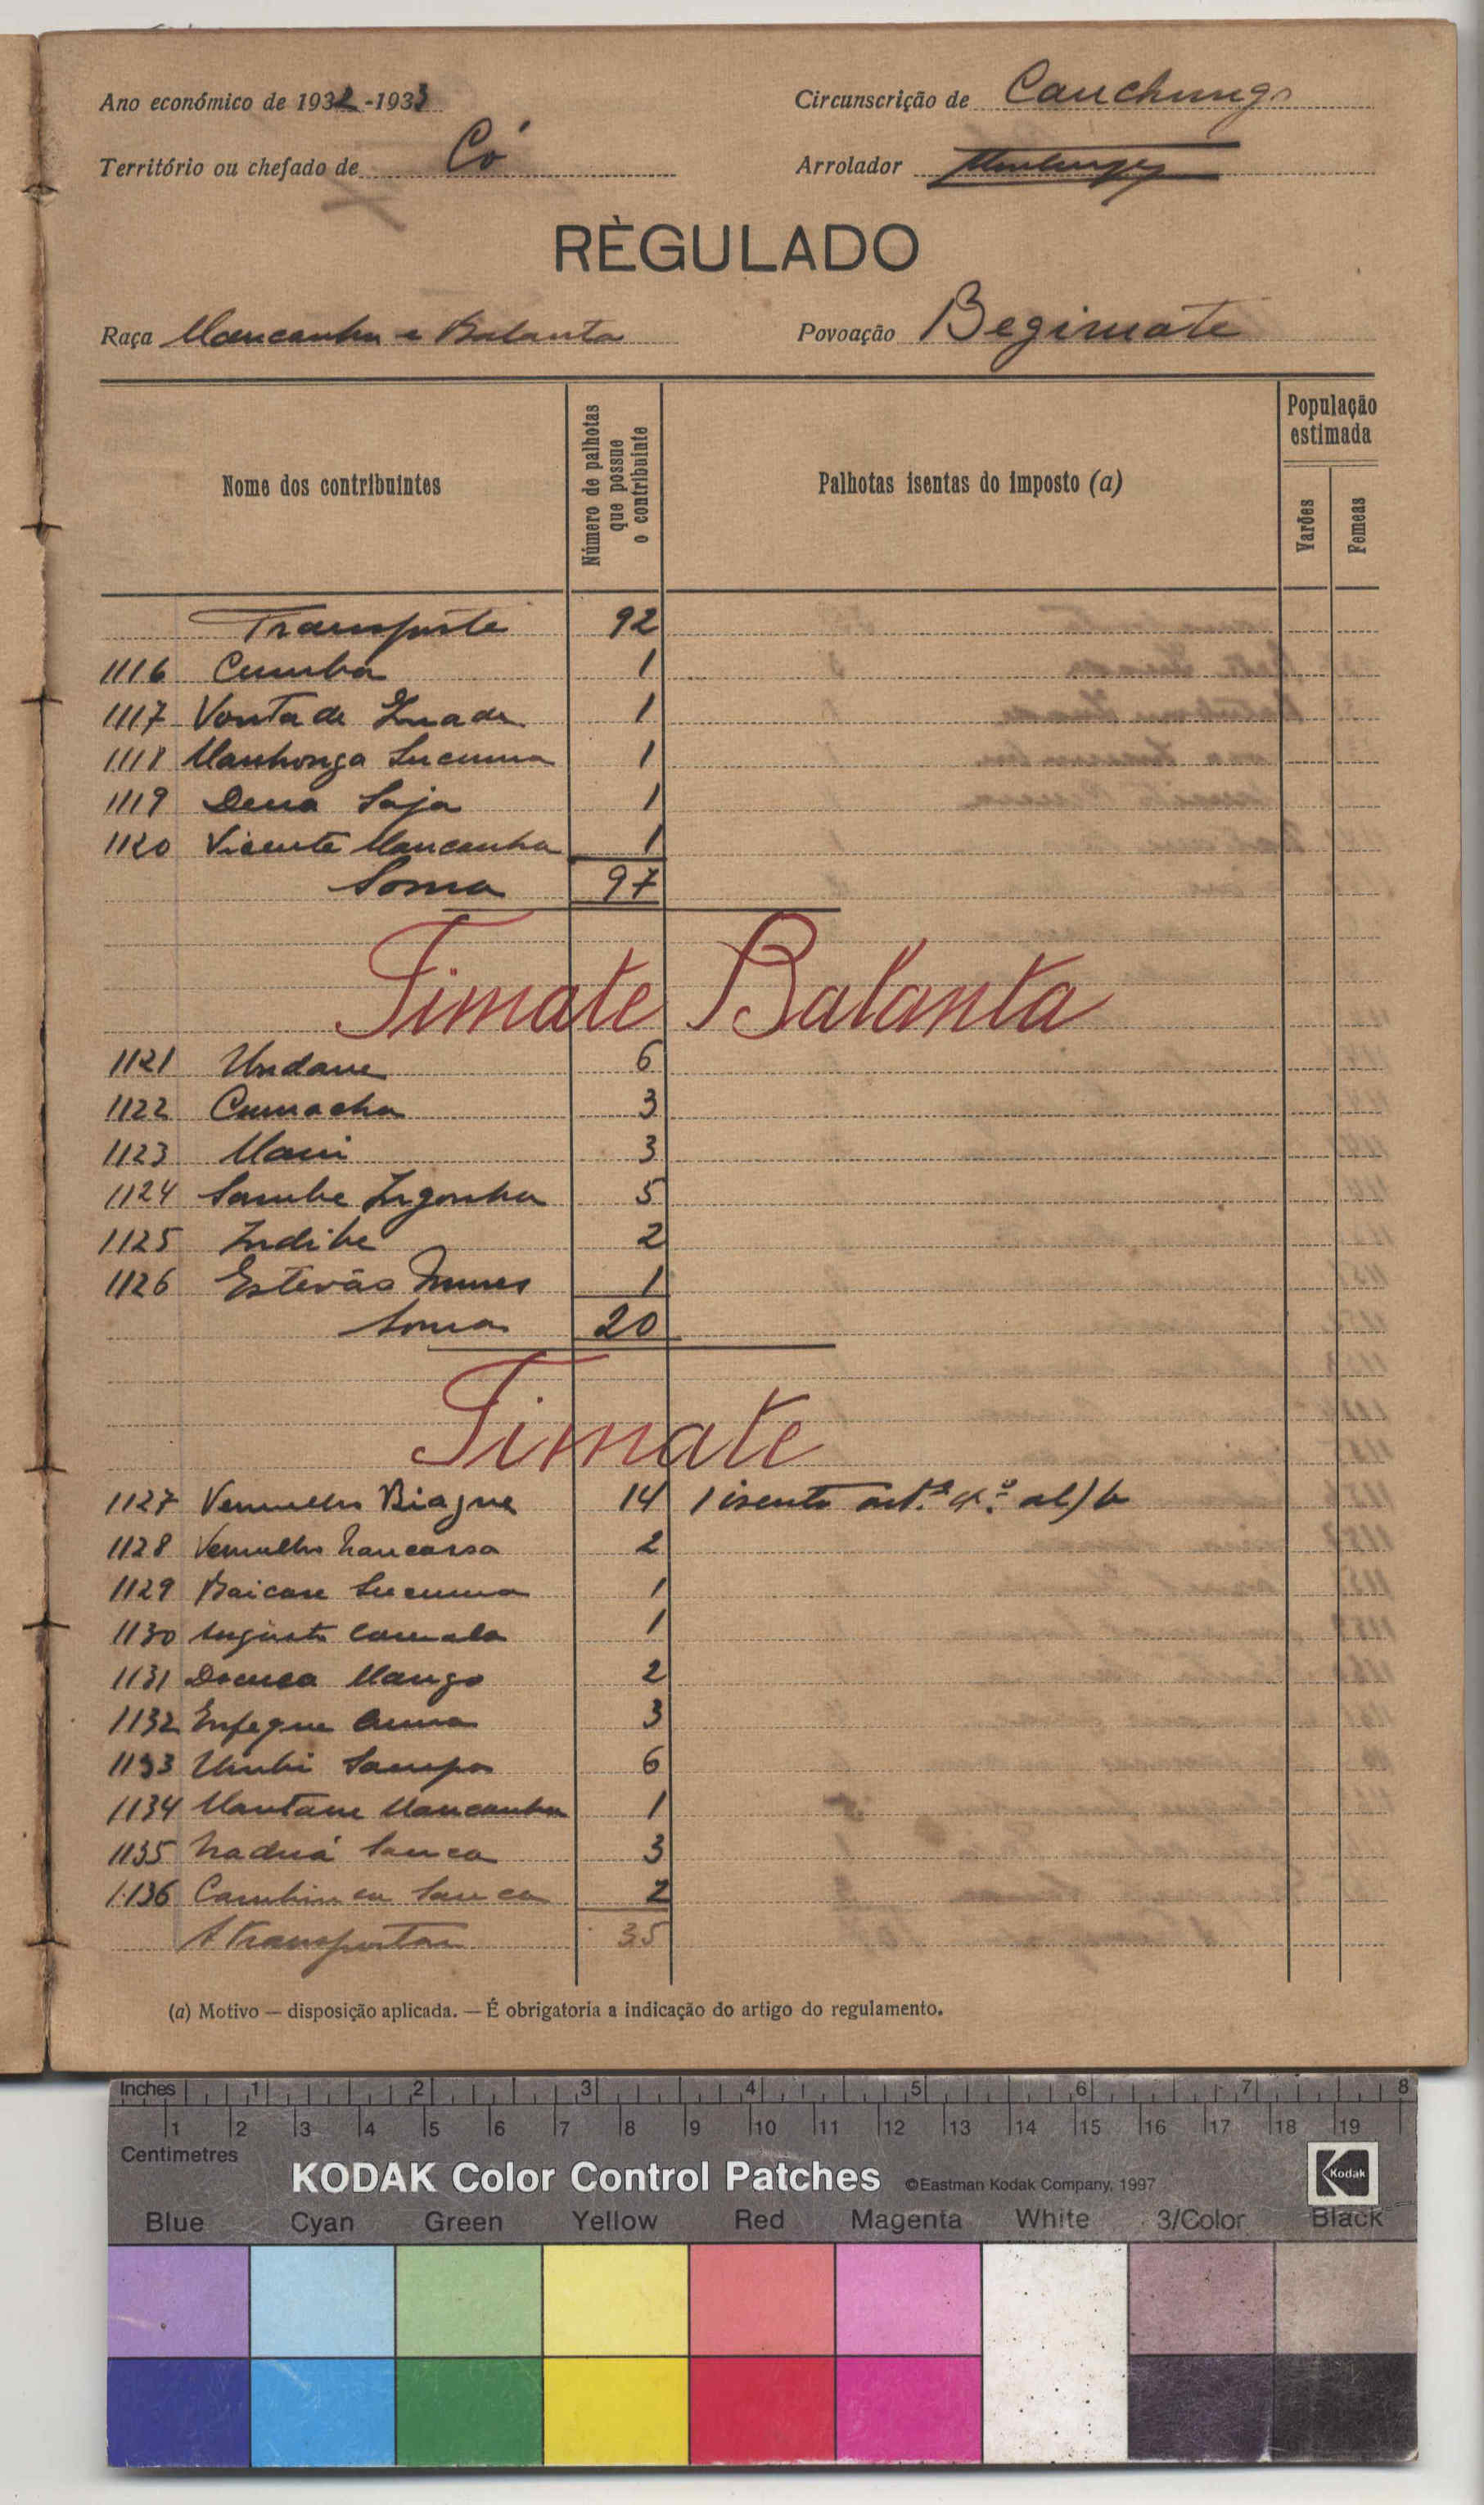 Ano económico de 1932-1933
Circunscrição de Cauchungo
Território ou chefado de Có
Arrolador
RÈGULADO
Raça Mancanha e Balanta
Povoação Begimate
Nome dos contribuintes
Número de palhotas que possue o contribuinte
Palhotas isentas do imposto (a)
População estimada
Varões
Femeas
Transporte 92
1116 Cumba 1
1117 Vontade 1
1118 Manhonga Sucuma 1
1119 Dena Saja 1
1120 Vicente Mancanha 1
Soma 97
Timate Balanta
1121 Undane 6
1122 Cumacha 3
1123 3
1124 Sambe Ingonha 5
1125 Indibe 2
1126 Estevão Nunes 1
Soma 20
Timate
1127 Vermelho Biague 14 1 isento art.º 4.º al) b
1128 Vermelho Nancassa 2
1129 Baicare Sucuma 1
1130 Augusto 1
1131 Mango 2
1132 3
1133 Sampa 6
1134 Mantane Mancanha 1
1135 Naduá Sanca 3
1136 Sanca 2
A transportar 35
(a) Motivo — disposição aplicada. — É obrigatoria a indicação do artigo do regulamento.
Inches 1 2 3 4 5 6 7 8
1 2 3 4 5 6 7 8 9 10 11 12 13 14 15 16 17 18 19
Centimetres
KODAK Color Control Patches ©Eastman Kodak Company, 1997 Kodak
Blue Cyan Green Yellow Red Magenta White 3/Color Black